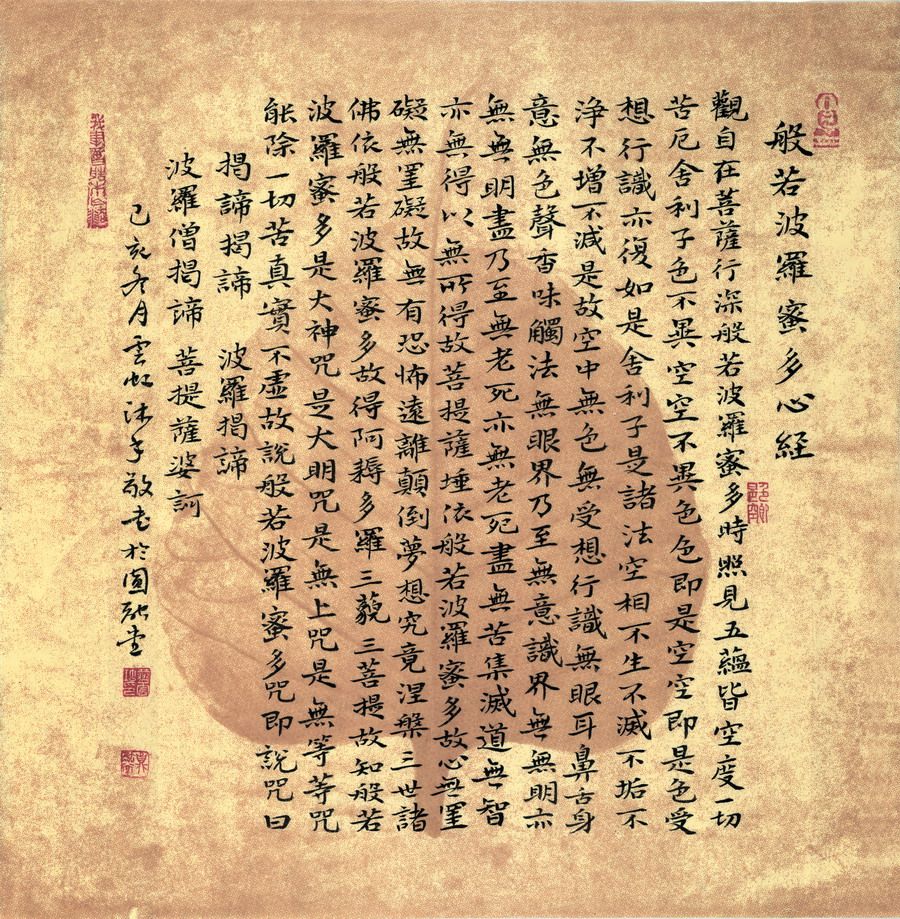 般若波羅蜜多心経
觀自在菩薩行深般若波羅蜜多時照見五蘊皆空度一切
苦厄舍利子色不異空空不異色色即是空空即是色受
想行識亦復如是舍利子是諸法空相不生不滅不垢不
淨不增不減是故空中無色無受想行識無眼耳鼻舌身
意無色聲香味觸法無眼界乃至無意識界無無明亦
無無明盡乃至無老死亦無老死盡無苦集滅道無智
亦無得以無所得故菩提薩埵依般若波羅蜜多故心無罣
礙無罣礙故無有恐怖遠離顛倒夢想究竟涅槃三世諸
佛依般若波羅蜜多故得阿耨多羅三藐三菩提故知般若
波羅蜜多是大神咒是大明咒是無上咒是無等等咒
能除一切苦真實不虛故說般若波羅蜜多咒即說咒曰
揭諦揭諦 波羅揭諦
波羅僧揭諦 菩提薩婆訶
己亥冬月雲虹沐手敬书於圓融堂